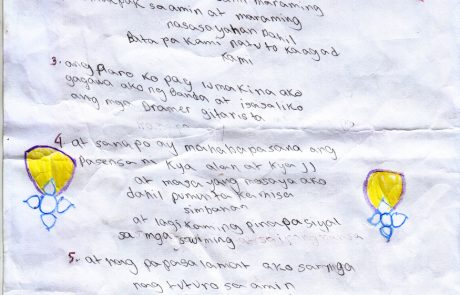 sa amin at maraming
nasasayahan Dahil
Bata pa Kami natuto kaagad
Kami
3. ang Plano ko pag lumaki na ako
gagawa ako ng Banda at isasaliko
ang mga Dramer gitarista
4 at sana po ay mahaba pasana ang
Pasensa ni Kya alan at Kya JJ
at masaya ako
dahil pumunta
simbahan
at lagi kaming pinapasiyal
sa mga swiming
5. at nag papasalamat ako sa mga
nag tuturo sa amin